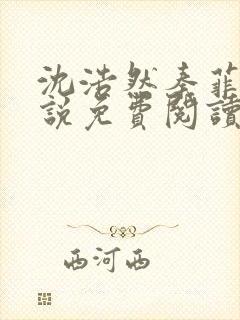 沈浩然秦菲
說免費閱讀
西河西